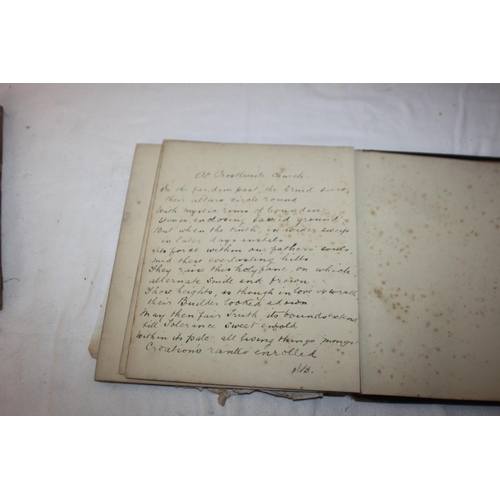 At Crosthwaite Church
In the far dim past, the Druid sires,
their altars, circle round
With mystic rims of boundary
stones, enclosing sacred ground
But when the truth, in wider sweep
in later days instals
Its force within our fathers' souls
mid these everlasting hills
They raise this holy fane, on which
alternate smile and frown
Those heights, as though in love or wrath,
their Builder looked adown
May then fair Truth its bounds extend
till Tolerance sweet enfold
Within its pale, all living things
Creation's ranks enrolled